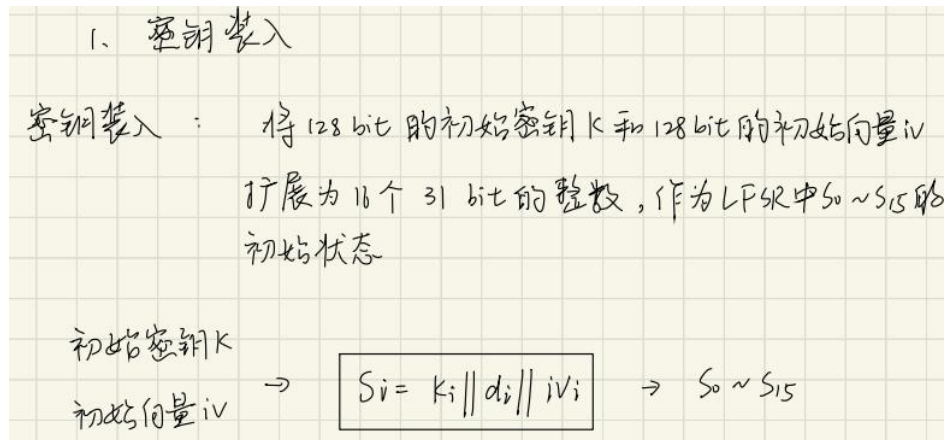 1、密钥装入
密钥装入： 将128 bit 的初始密钥K和128bit的初始向量iv
扩展为16个 31 bit的整数，作为LFSR中S₀~S₁₅的
初始状态
初始密钥K
初始向量iv → Si= Ki||di||iVi → S₀~S₁₅